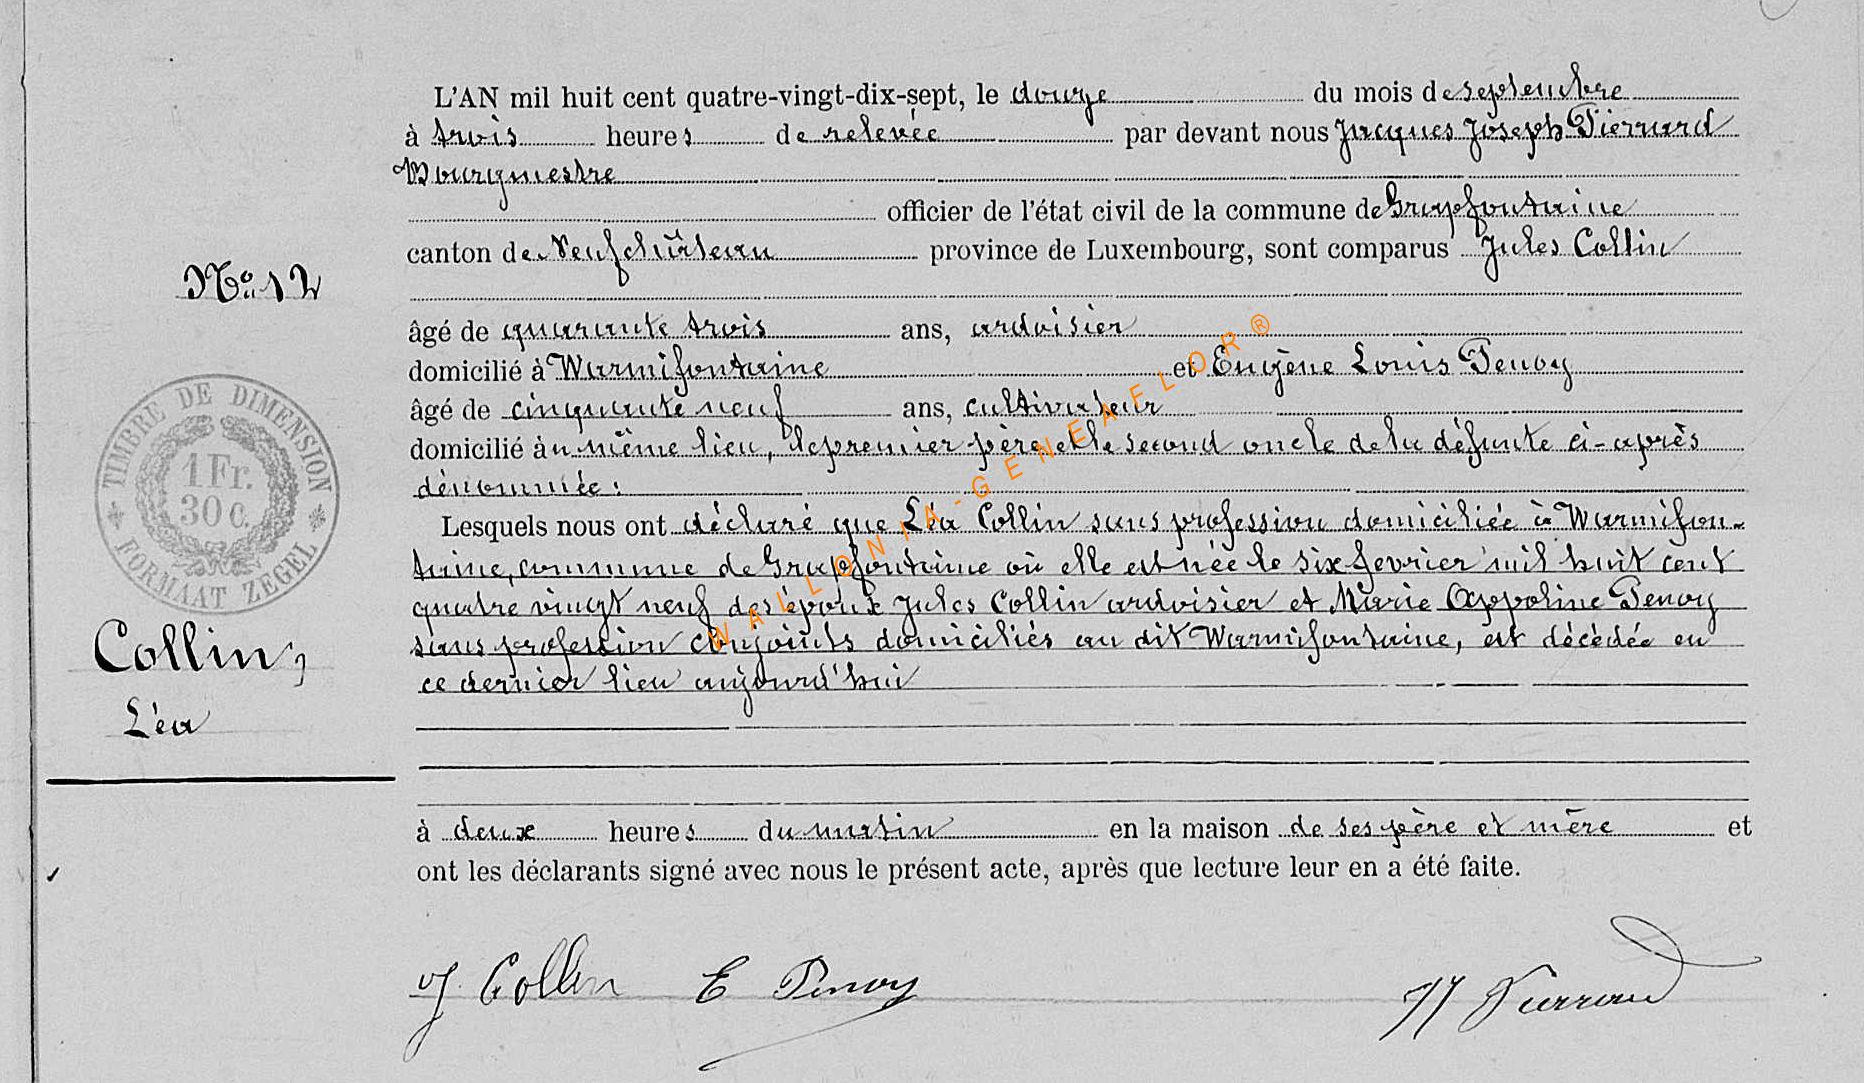 L'AN mil huit cent quatre-vingt-dix-sept, le douze du mois de septembre
à trois heures de relevée par devant nous Jacques Joseph Pierrard
Bourgmestre
officier de l'état civil de la commune de Grapfontaine
canton de Neufchâteau province de Luxembourg, sont comparus Jules Collin
No 12
âgé de quarante trois ans, ardoisier
domicilié à Warmifontaine et Eugène Louis Penoy
âgé de cinquante neuf ans, cultivateur
domicilié au même lieu, le premier père et le second oncle de la défunte ci-après
dénommée:
TIMBRE DE DIMENSION
1 Fr.
30 c.
FORMAAT ZEGEL
Lesquels nous ont déclaré que Léa Collin sans profession domiciliée à Warmifon-
taine, commune de Grapfontaine où elle est née le six fevrier mil huit cent
quatre vingt neuf des époux Jules Collin ardoisier et Marie Appoline Penoy
sans profession conjoints domiciliés au dit Warmifontaine, est décédée en
ce dernier lieu aujourd'hui
Collin,
Léa
à deux heures du matin en la maison de ses père et mère et
ont les déclarants signé avec nous le présent acte, après que lecture leur en a été faite.
J. Collin E Penoy JJ Pierrard
WALLONIA-GENEAFLOR®